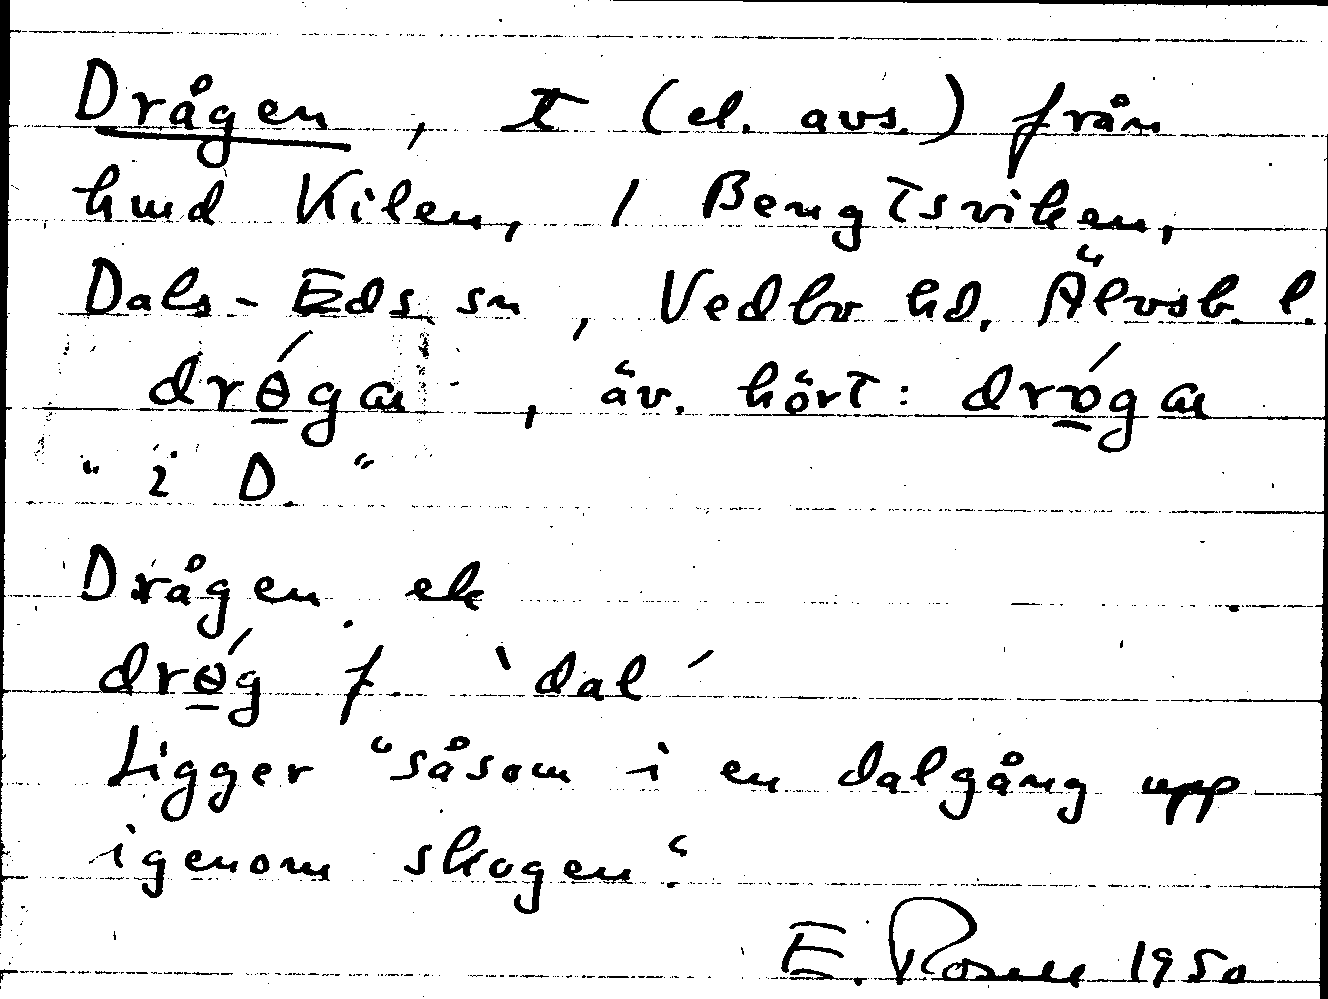 Drågen, t (el. avs.) från
hmd Kilen, 1 Bengtsviken,
Dals-Eds sn, Vedbo hd. Älvsb. l.
drɵ̲́gan, äv. hört: drʋ̲́gan
"i D."
Drågen ek
drɵ̲́g f. `dal´
Ligger "såsom i en dalgång upp
igenom skogen."
E. Rosell 1950